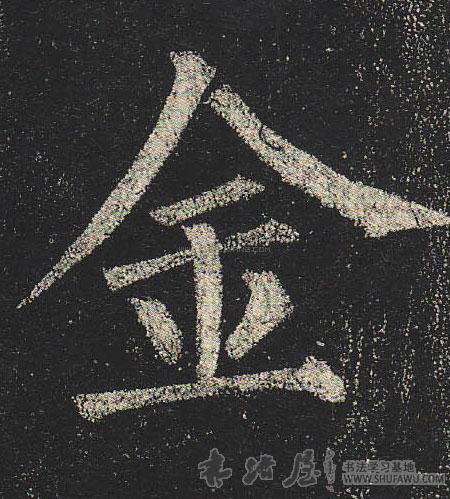 金
书法学习基地
WWW.SHUFAWU.COM